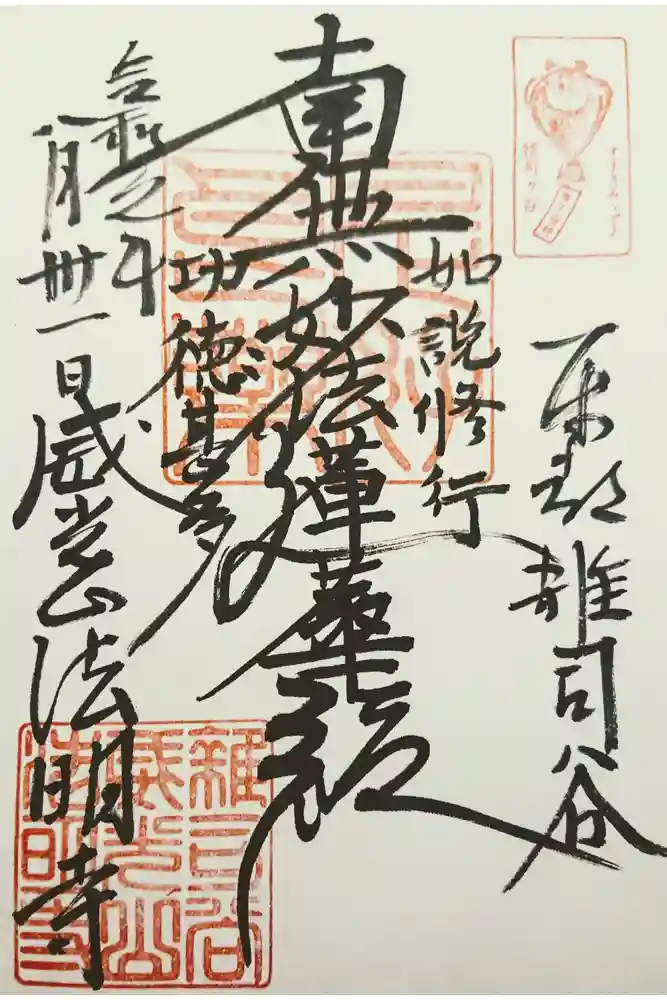 東都雑司谷
如説修行
南無妙法蓮華経
功徳甚多
令和 年
八月卅一日
威光山法明寺
雑司谷
威光山
法明寺